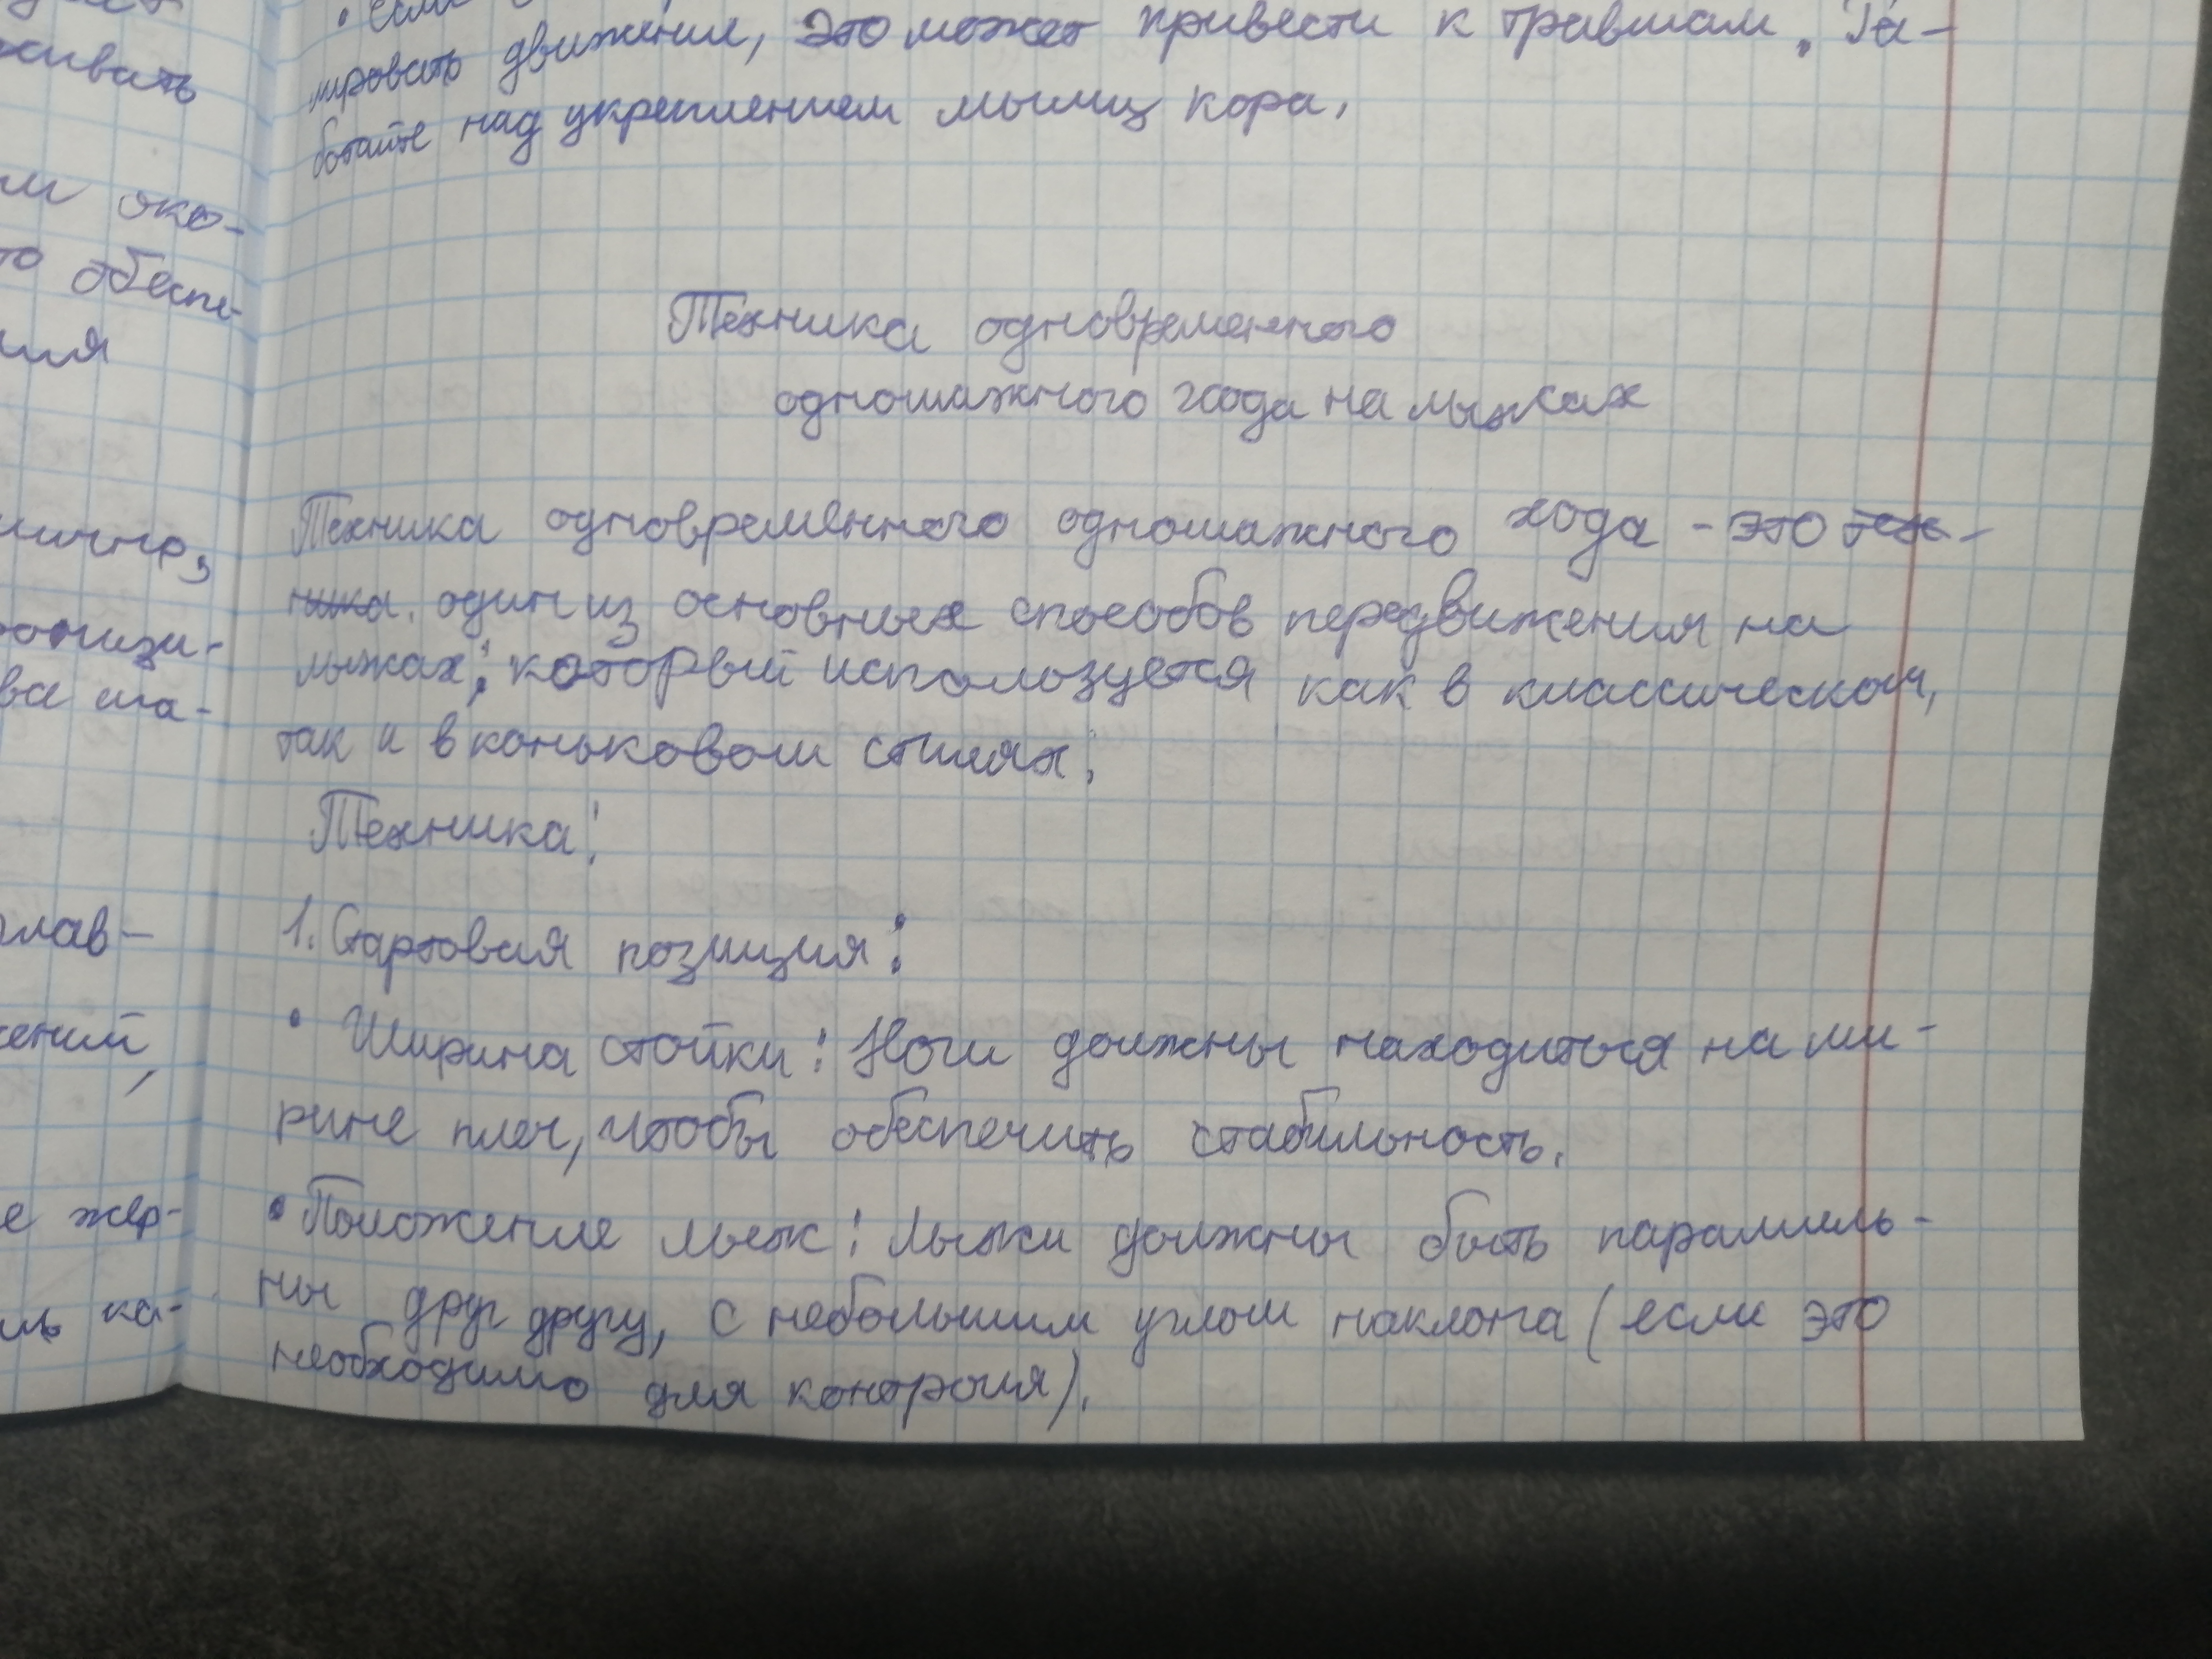 живать
око-
то обеспе-
ва ша-
глав-
жений,
е жер-
ка-
• если
мировать движение, это может привести к травмам. Ра-
ботайте над укреплением мышц кора.
Техника одновременного
одношажного хода на лыжах
Техника одновременного одношажного хода - это тех-
ника. один из основных способов передвижения на
лыжах; который используется как в классическом,
так и в коньковом стилях;
Техника:
1. Стартовая позиция:
• Ширина стойки: Ноги должны находиться на ши-
рине плеч, чтобы обеспечить стабильность.
• Положение лыж: Лыжи должны быть параллель-
ны друг другу, с небольшим углом наклона (если это
необходимо для контроля).